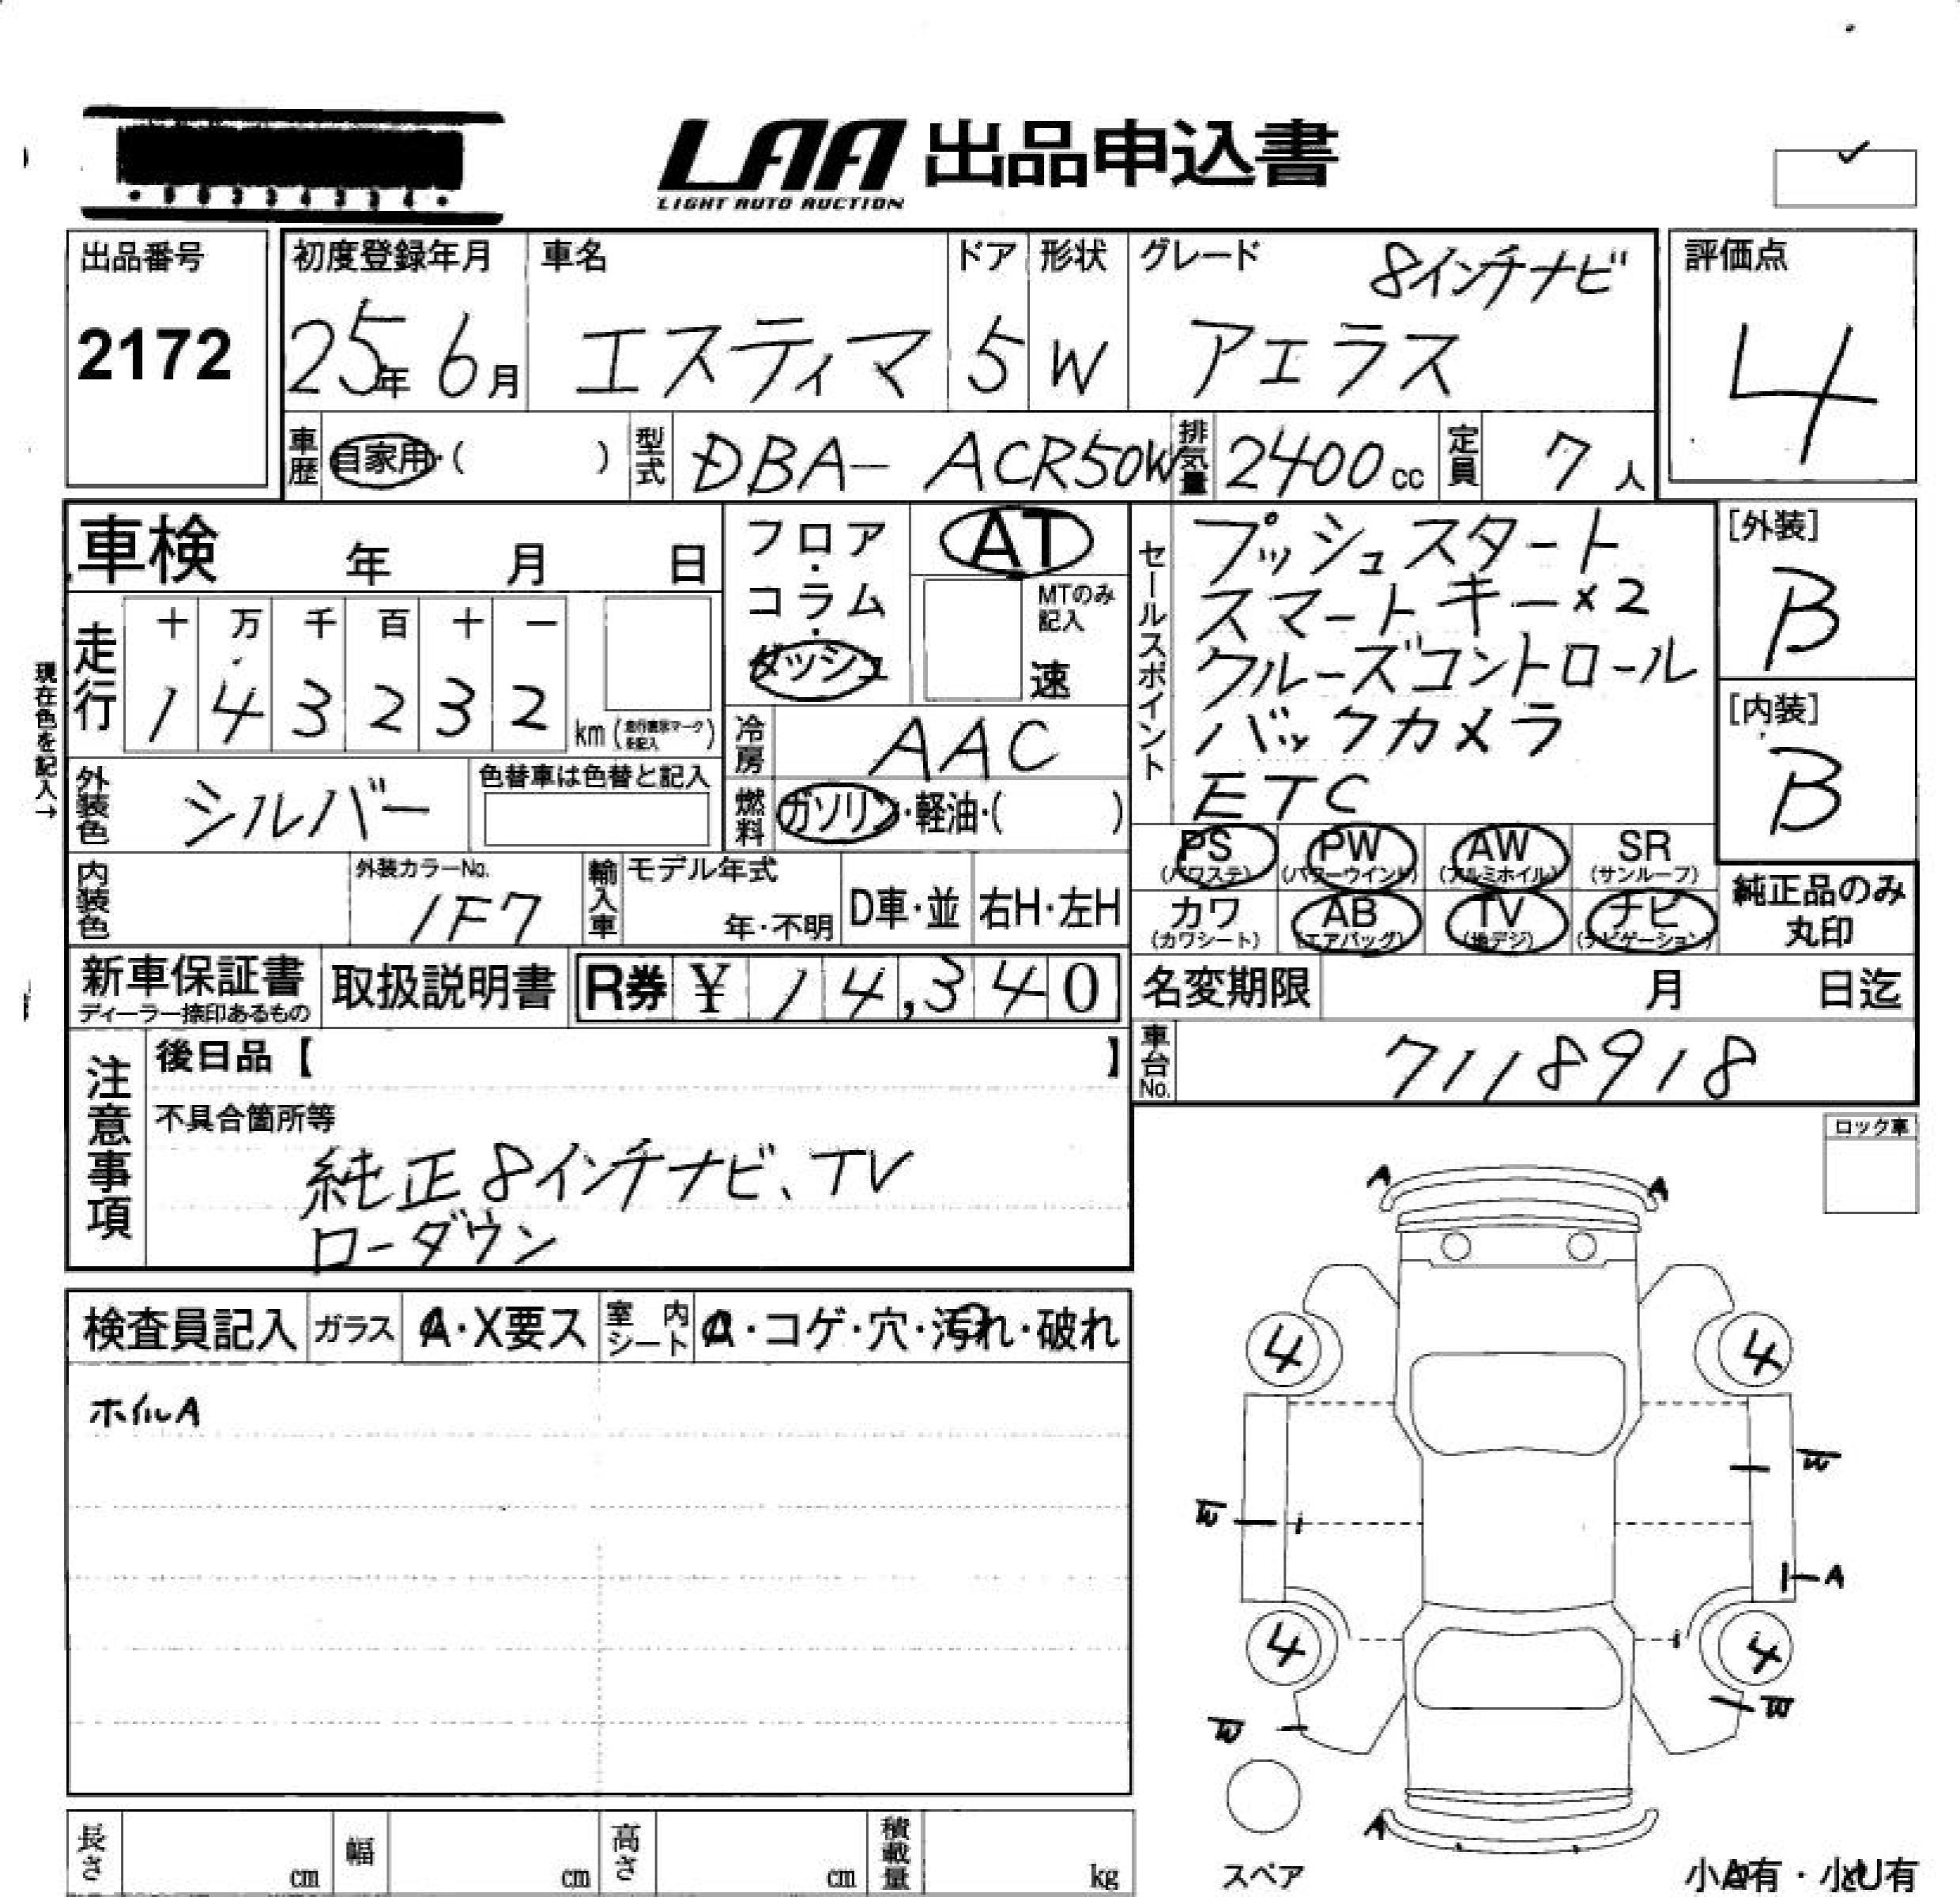 LAA 出品申込書
LIGHT AUTO AUCTION
出品番号
2172
初度登録年月
25年6月
車名
エスティマ
ドア
5
形状
W
グレード
8インチナビ
アエラス
評価点
4
車歴
自家用・( )
型式
DBA- ACR50W
排気量
2400cc
定員
7人
車検 年 月 日
現在色を記入→
走行
十 万 千 百 十 一
1 4 3 2 3 2
km
フロア・
コラム・
ダッシュ
AT
MTのみ
記入
速
冷房
AAC
燃料
ガソリン・軽油・( )
外装色
シルバー
色替車は色替と記入
内装色
外装カラーNo.
1F7
輸入車
モデル年式
年・不明
D車・並
右H・左H
セールスポイント
プッシュスタート
スマートキー×2
クルーズコントロール
バックカメラ
ETC
[外装]
B
[内装]
B
PS
(パワステ)
PW
(パワーウインド)
AW
(アルミホイル)
SR
(サンルーフ)
カワ
(カワシート)
AB
(エアバッグ)
TV
(地デジ)
ナビ
(ナビゲーション)
純正品のみ
丸印
新車保証書
ディーラー捺印あるもの
取扱説明書
R券 ¥ 14,340
名変期限 月 日迄
車台No.
7118918
注意事項
後日品【 】
不具合箇所等
純正8インチナビ、TV
ローダウン
ロック車
検査員記入
ガラス
A・X要ス
室内
シート
・コゲ・穴・汚れ・破れ
ホイルA
A A
4 4
W
W
A
4 4
W
W
A
スペア
小A有・小U有
長さ cm
幅 cm
高さ cm
積載量 kg